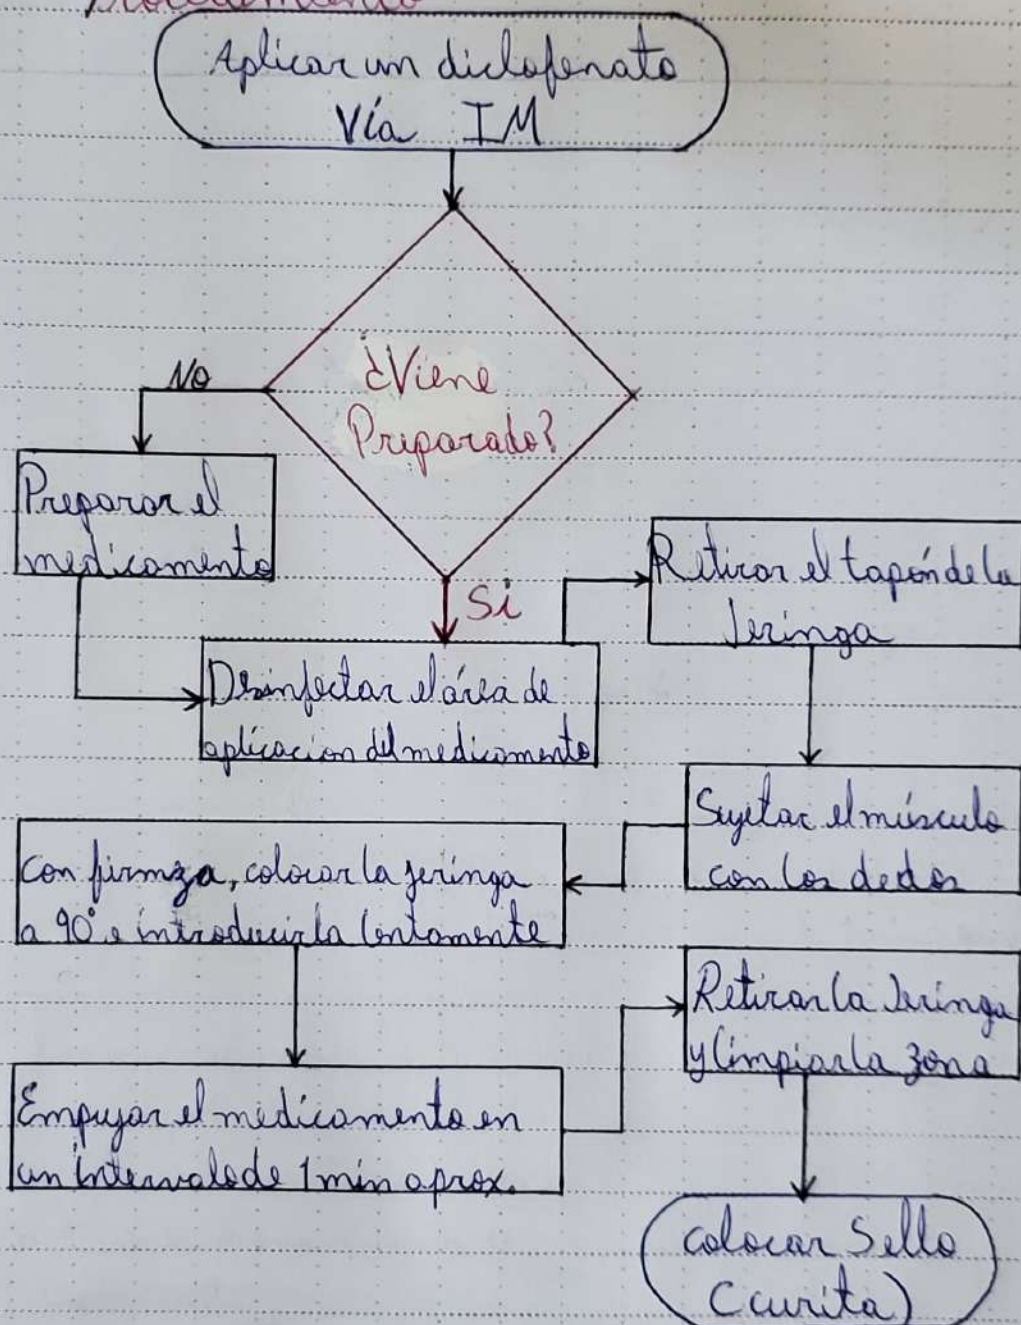 Procedimiento
Aplicar un diclofenato
Vía IM
¿Viene
Preparado?
No
Si
Preparar el
medicamento
Desinfectar el área de
aplicacion del medicamento
Retirar el tapón de la
Jeringa
Sujetar el músculo
con los dedos
Con firmeza, colocar la jeringa
a 90° e introducirla lentamente
Empujar el medicamento en
un intervalo de 1 min aprox.
Retirar la Jeringa
y limpiar la zona
colocar Sello
(curita)